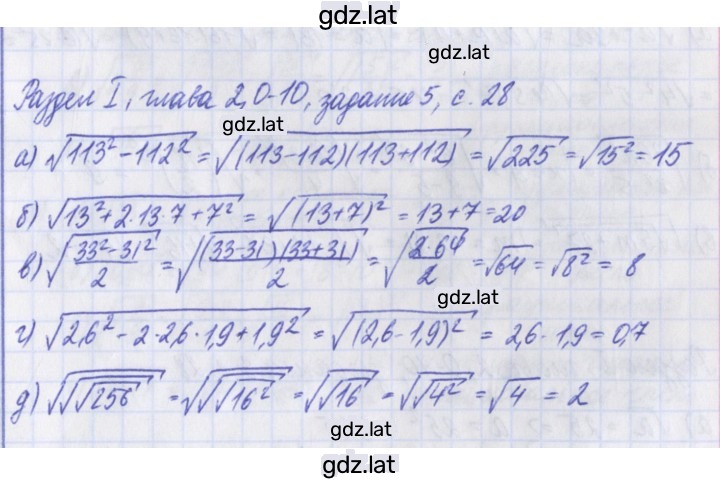 gdz.lat
gdz.lat
Раздел I, глава 2, О-10, задание 5, с. 28
gdz.lat
а) √(113² - 112²) = √((113-112)(113+112)) = √225 = √15² = 15
б) √(13² + 2·13·7 + 7²) = √((13+7)²) = 13+7 = 20
в) √((33² - 31²)/2) = √((33-31)(33+31)/2) = √(2·64/2) = √64 = √8² = 8
gdz.lat
г) √(2,6² - 2·2,6·1,9 + 1,9²) = √((2,6 - 1,9)²) = 2,6 - 1,9 = 0,7
д) √√√256 = √√√16² = √√16 = √√4² = √4 = 2
gdz.lat
gdz.lat